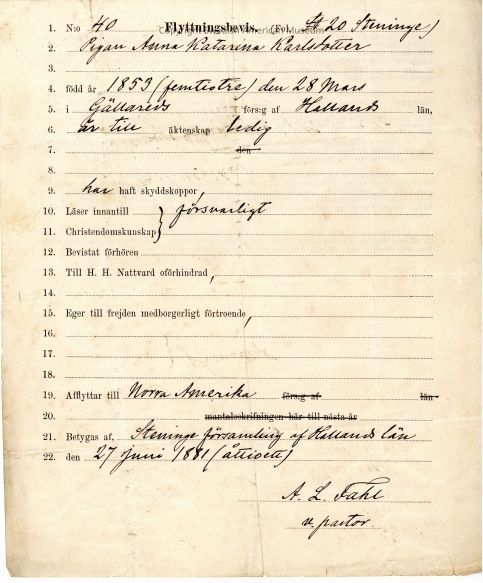 1. N:o 40 Flyttningsbevis. (Fol. St 20 Steninge)
2. Pigan Anna Katarina Karlsdotter
3.
4. född år 1853 (femtiotre) den 28 Mars
5. i Gällareds förs:g af Hallands län,
6. är till äktenskap ledig
7. den
8.
9. har haft skyddskoppor,
10. Läser innantill } försvarligt
11. Christendomskunskap
12. Bevistat förhören
13. Till H. H. Nattvard oförhindrad,
14.
15. Eger till frejden medborgerligt förtroende,
16.
17.
18.
19. Afflyttar till Norra Amerika förs:g af län
20. mantalsskrifningen här till nästa år
21. Betygas af, Steninge församling af Hallands län
22. den 27 Juni 1881 (åttioett)
A. L. Fahl
v. pastor.